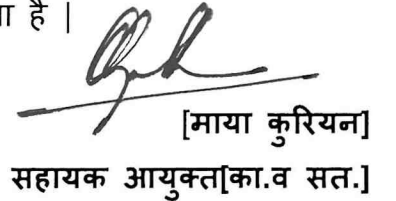 है |
[माया कुरियन]
सहायक आयुक्त[का.व सत.]